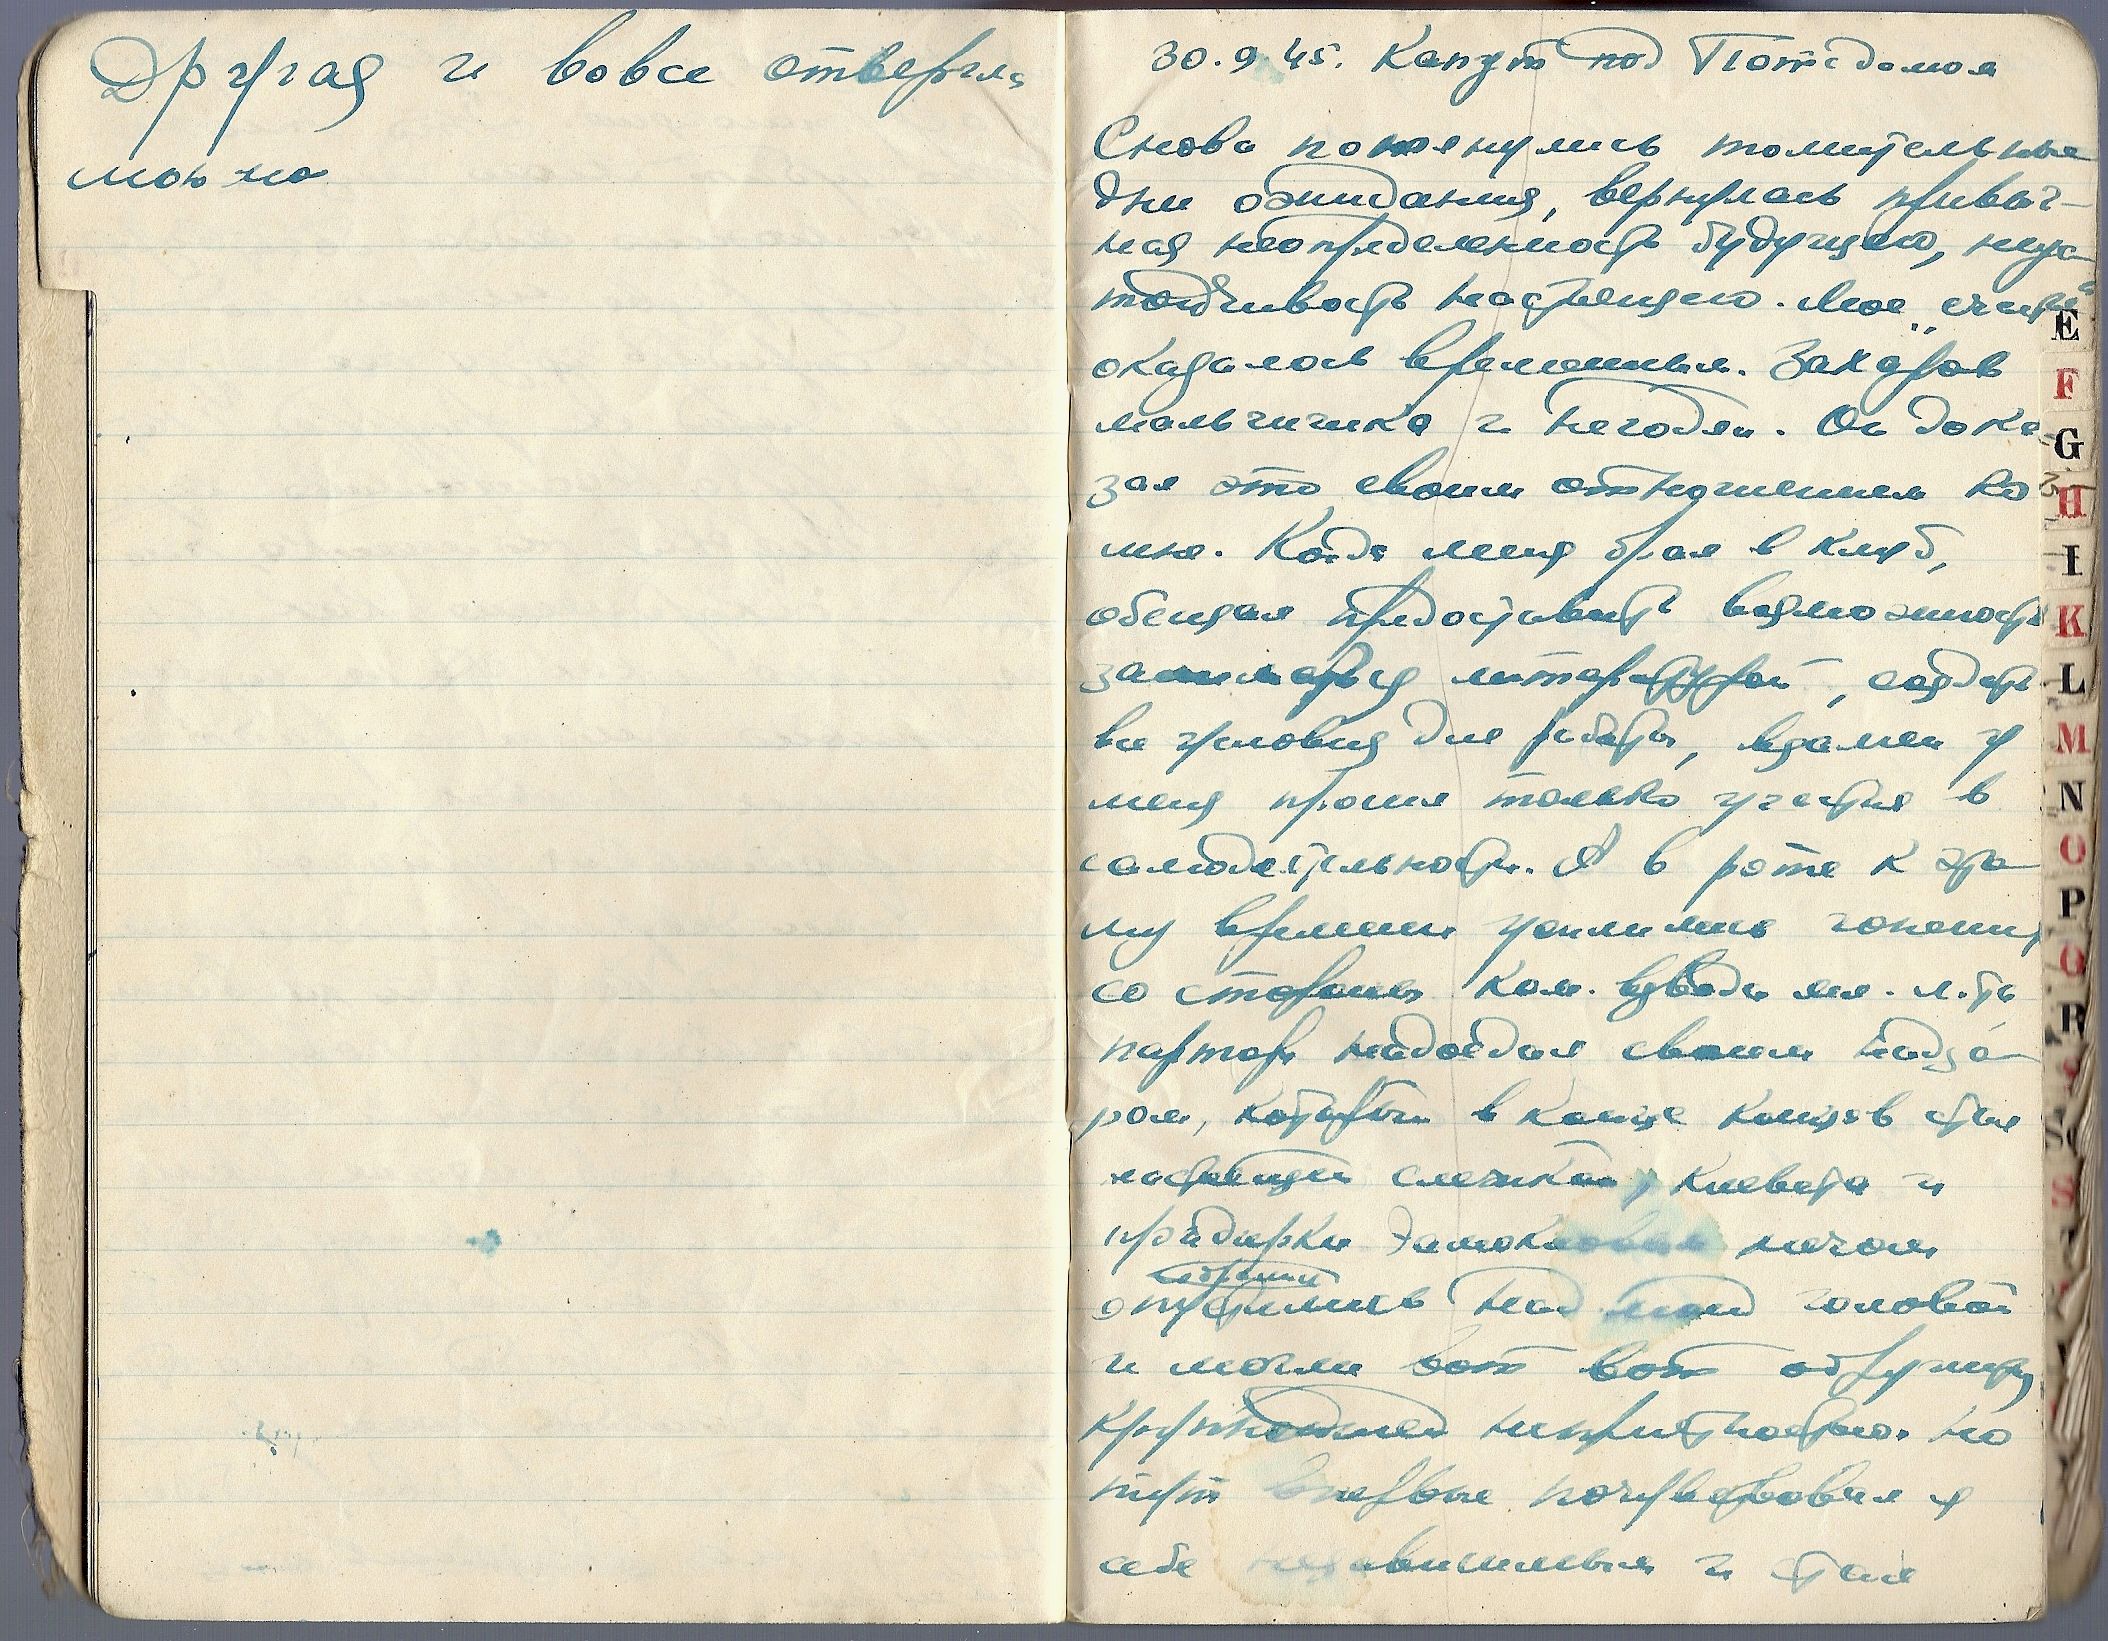 Другая и вовсе отвергла
мою но
30.9.45. Капут под Потсдамом
Снова потянулись томительные
дни ожидания, вернулась привыч-
ная неопределенность будущего, неус-
тойчивость настоящего. Мое „счастье“
оказалось временным. Захаров
мальчишка и негодяй. Он дока-
зал это своим отношением ко
мне. Когда меня брал в клуб,
обещал предоставить возможность
заниматься литературой, создать
все условия для работы, взамен у
меня просил только участия в
самодеятельности. А в роте к это-
му времени усилились гонения
со стороны ком. взвода мл. л-та
парторг надоедал своим надзо-
ром, который в конце концов стал
настоящей слежкой, клевета и
придирки дамокловым мечом
собраний
опустились над моей головой
и могли вот вот обрушиться
крупной неприятностью. Но
тут впервые почувствовал я
себе независимым и стал
E
F
G
H
I
K
L
M
N
O
P
Q
R
S